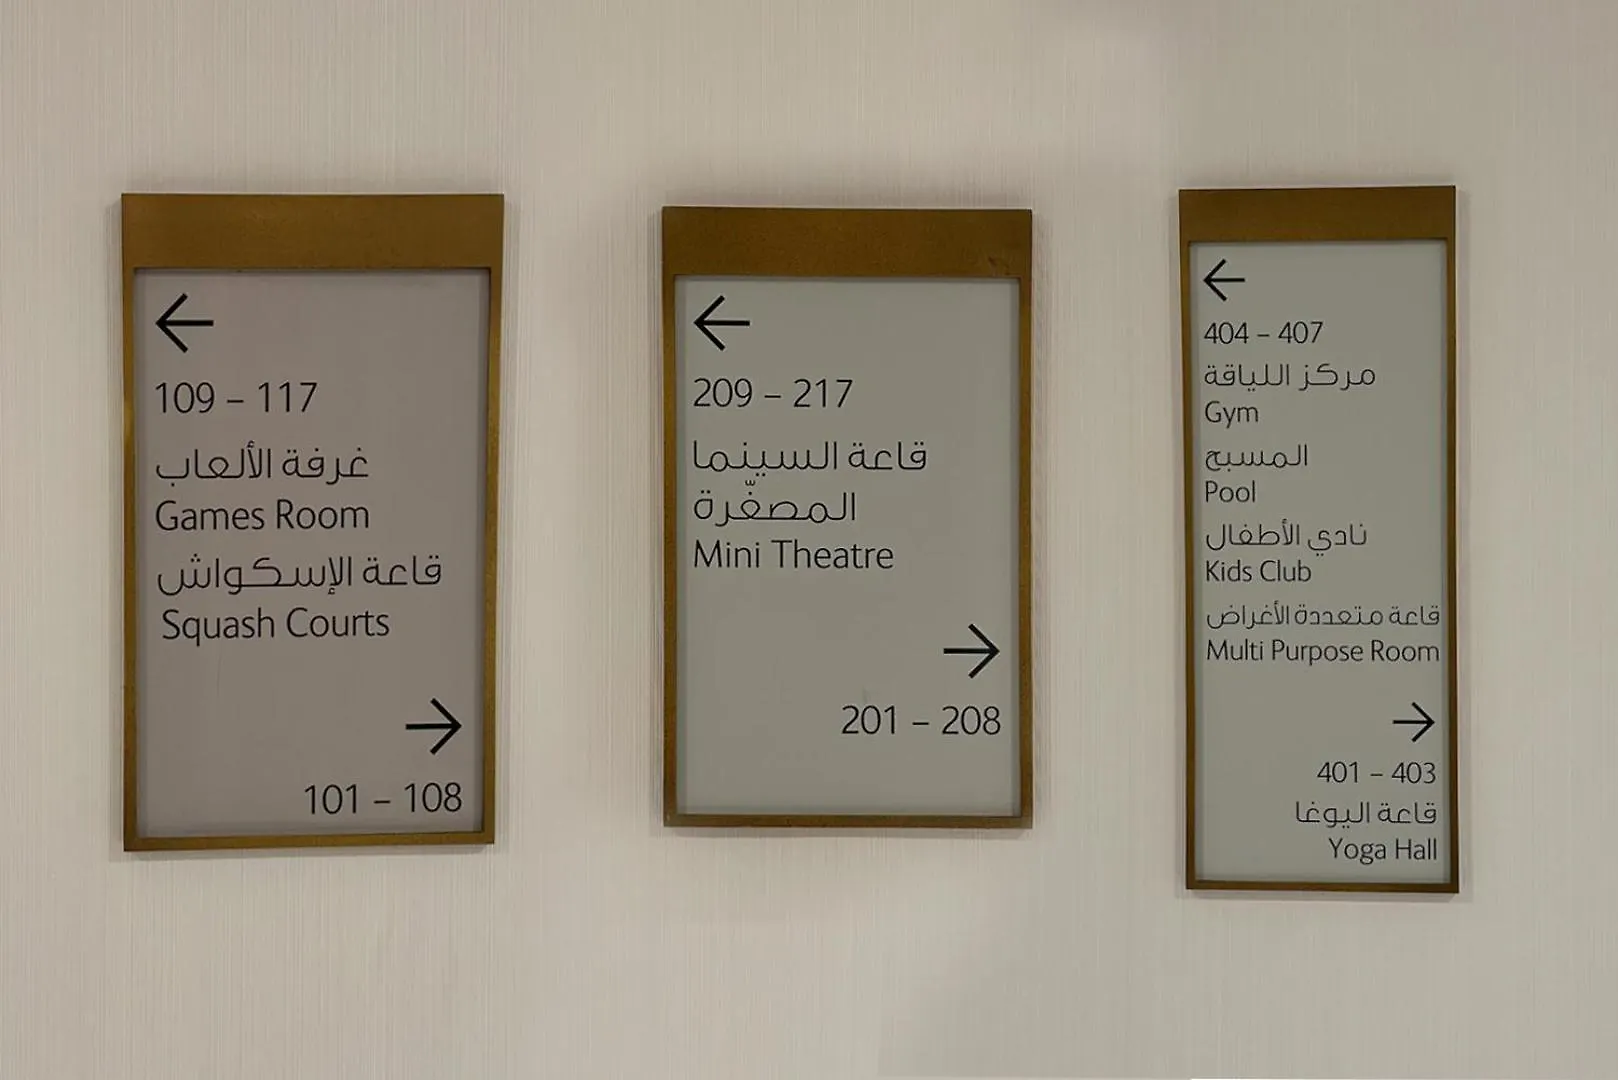 ←
109 – 117
غرفة الألعاب
Games Room
قاعة الإسكواش
Squash Courts
→
101 – 108
←
209 – 217
قاعة السينما
المصغّرة
Mini Theatre
→
201 – 208
←
404 – 407
مركز اللياقة
Gym
المسبح
Pool
نادي الأطفال
Kids Club
قاعة متعددة الأغراض
Multi Purpose Room
→
401 – 403
قاعة اليوغا
Yoga Hall